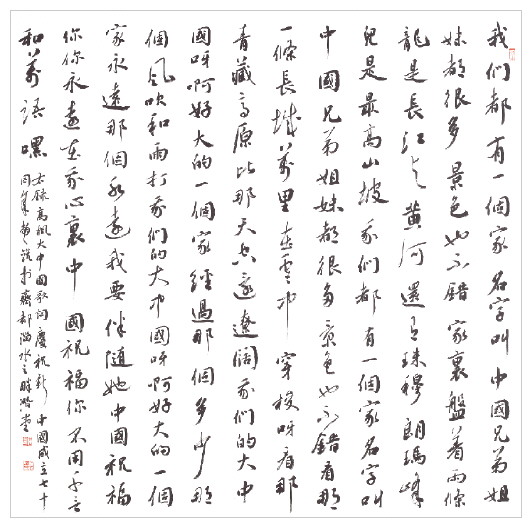 我們都有一個家名字叫中國兄弟姐
妹都很多景色也不錯家裏盤着兩條
龍是長江与黄河還有珠穆朗瑪峰
兒是最高山坡我们都有一個家名字叫
中國兄弟姐妹都很多景色也不錯看那
一條長城萬里在雲中穿梭呀看那
青藏高原比那天空還遼闊我们的大中
國呀啊好大的一個家經過那個多少那
個風吹和雨打我们的大中國呀啊好大的一個
家永遠那個永遠我要伴隨她中國祝福
你你永遠在我心裏中國祝福你不用千言
和萬語嘿
右録高楓大中國歌詞慶祝新中國成立七十
周年 於齊都淄水之畔